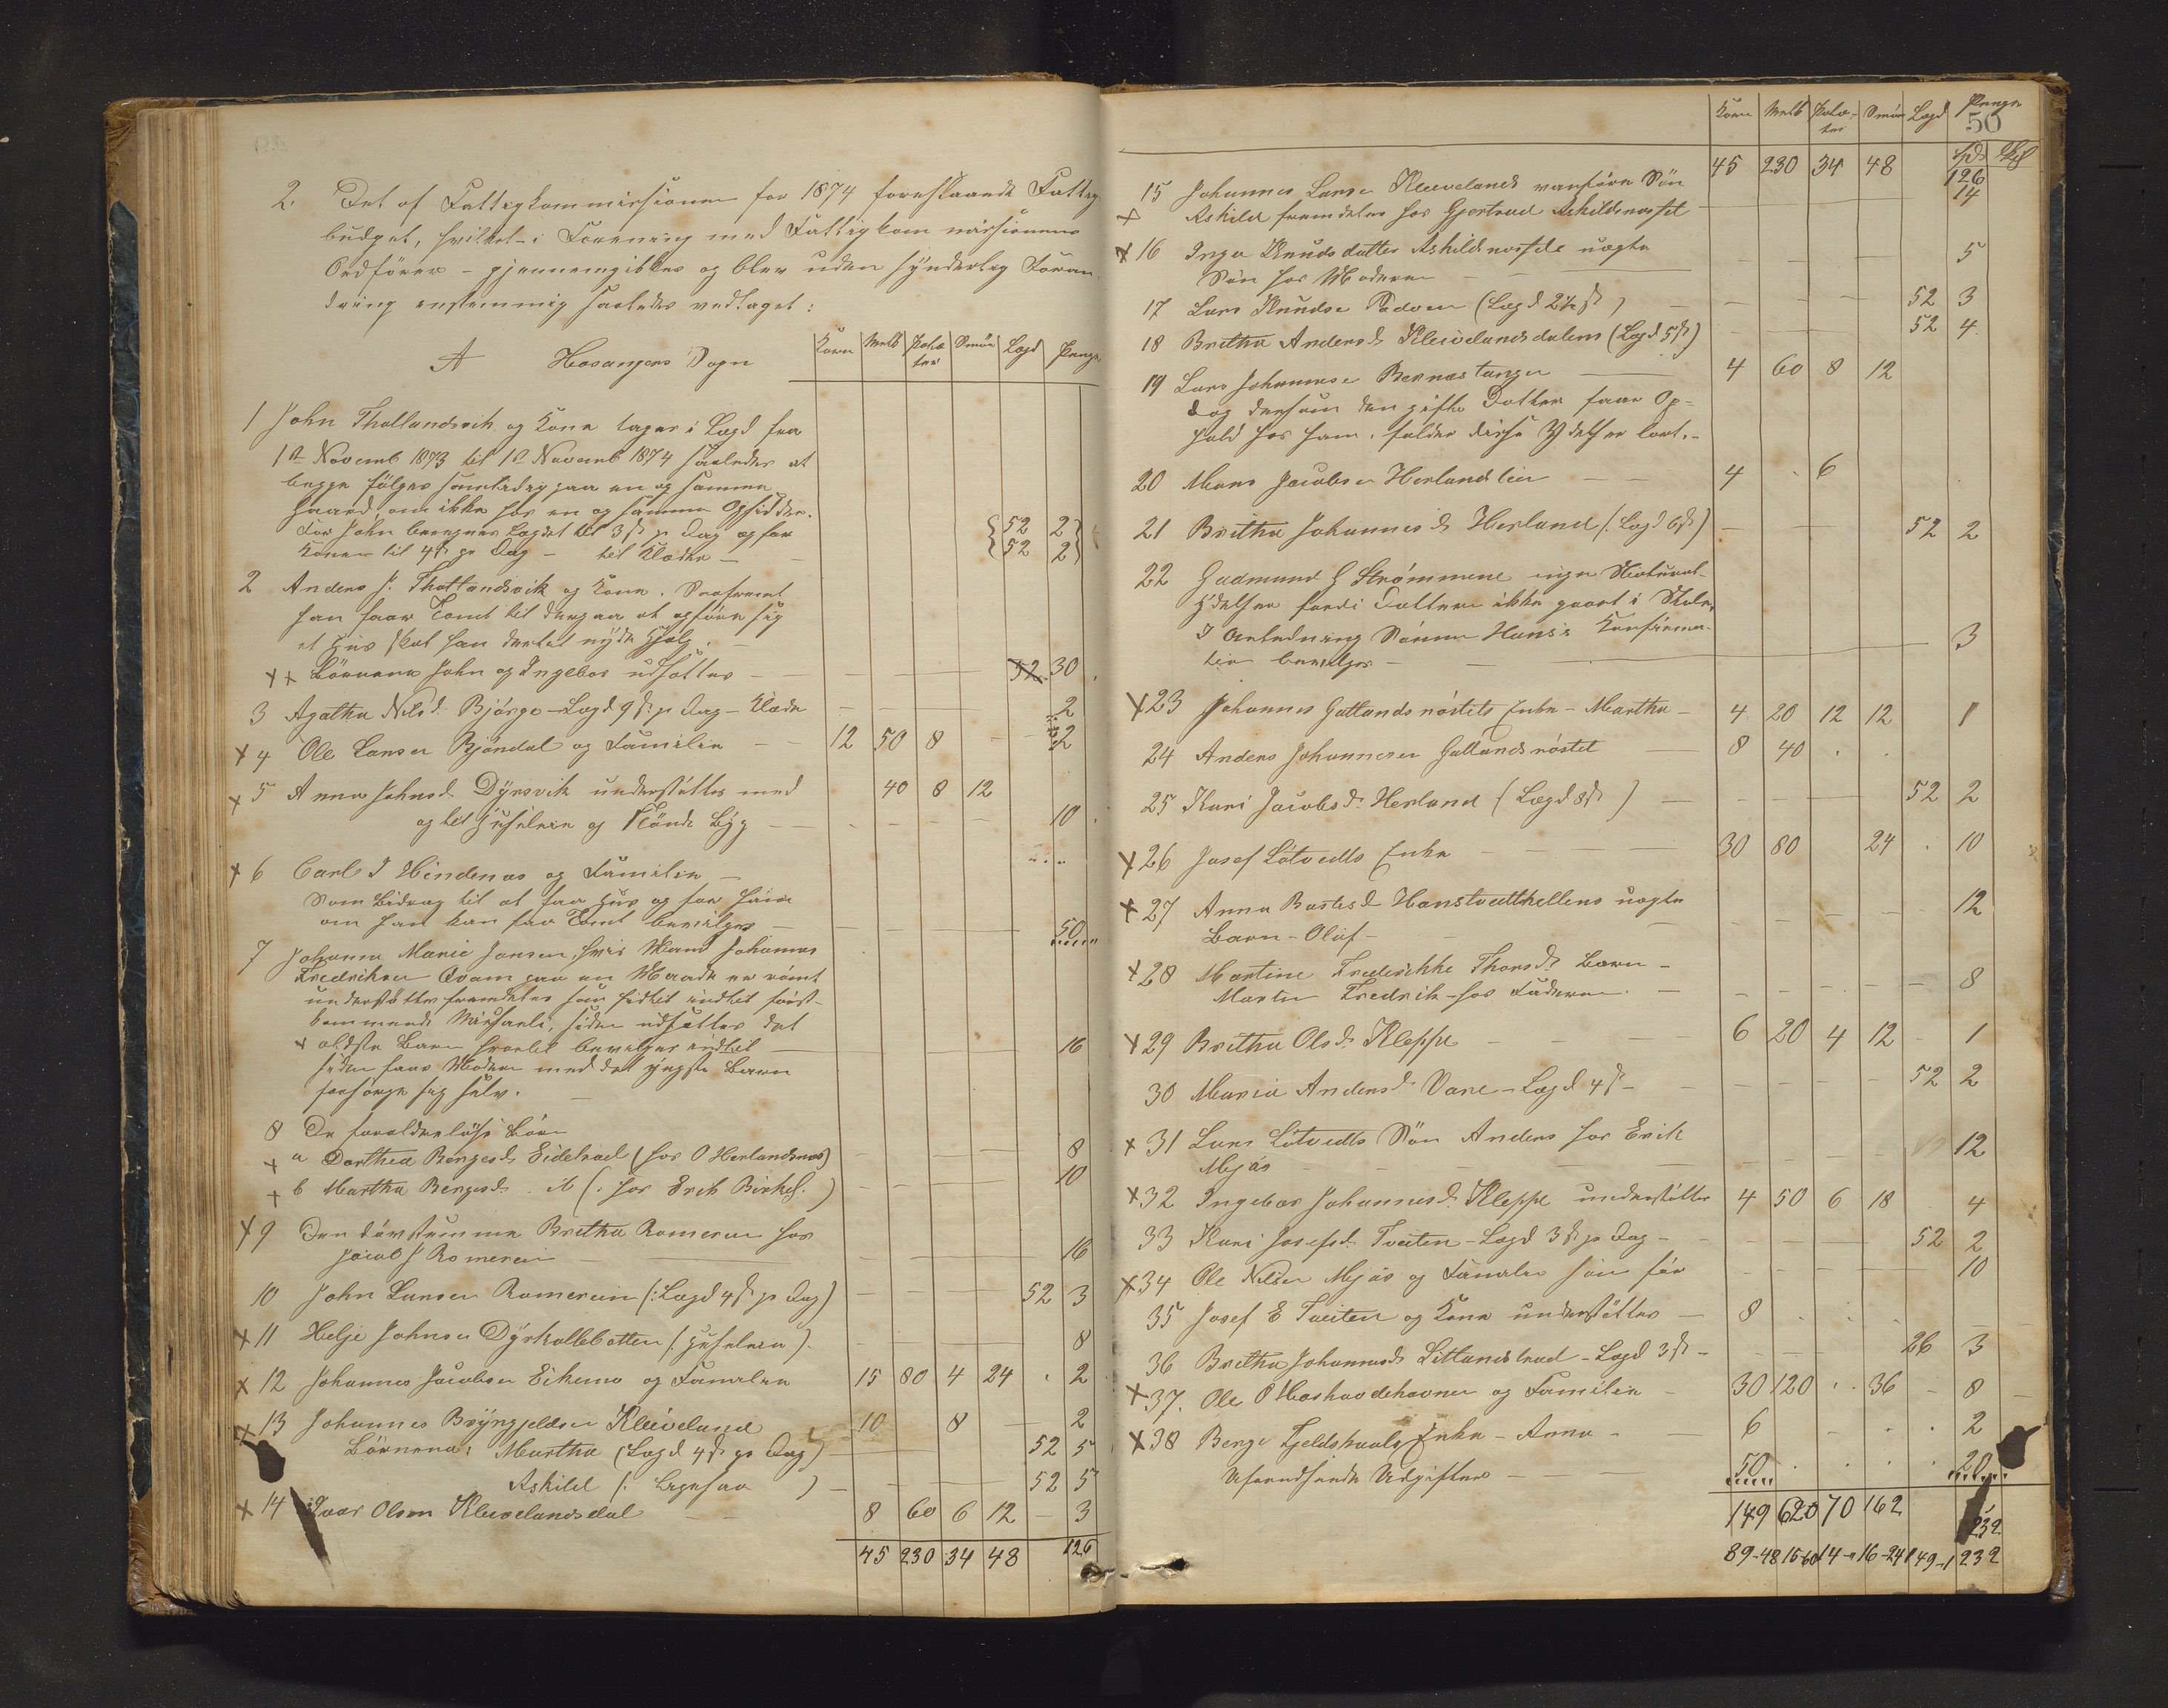 2. Det af Fattigkommissionen for 1874 foreslaaede Fattig
budget, hvilket - i Forening med Fattigkommissionens
Ordfører - gjennemgikkes og blev uden synderlig Foran
dring enstemmig saaledes vedtaget:
A Hosangers Sogn Korn Melk Pote ter Smør Lægd Penge
1 John Thollandsvik og Kone tages i Lægd fra
1ste Novemb 1873 til 1ste Novemb 1874 saaledes at
begge følges samtidig paa en og samme
Gaard om ikke hos en og samme Opsidder.
For John beregnes Lægdet til 3 s pr Dag og for 52 2
Konen til 4 s pr Dag - til Klæder - 52 2
2 Anders J. Thollandsvik og Kone. Saafremt
han faar Tomt til derpaa at opføre sig
et Huus skal han dertil nyde Hjælp.
++ Børnene John og Ingebor udsættes - 52 30
3 Agatha Nilsd. Bjørge - Lægd 9 s pr Dag - Klæder 2
+ 4 Ole Larsen Bjøndal og Familie - 12 50 8 2
+ 5 Anna Johnsd. Dyrsvik understøttes med 40 8 12
og til Huusleie og Tønde Byg - 10
+ 6 Carl J Hindenæs og Familie -
Som Bidrag til at faa Huus og for Huusleie
om han kan faa Tomt bevilges - 50
7 Johanna Marie Jonsen, hvis Mand Johannes
Fredriksen Qvam paa en Maade er rømt
understøttes fremdeles som hidtil indtil først-
kommende siden udsættes det
+ ældste Barn hvortil bevilges indtil 16
siden faar Moderen med det yngste Barn
forsørge sig selv.
8 De forældreløse Børn
+ a Dorthea Bergesd. Eidetræd (hos O Herlandsnæs) 8
+ b Martha Bergesd. ib (: hos Erik Birkel. ) 10
+ 9 Den døvstumme Britha Romerein hos
Jacob J Romerein - 16
10 John Larsen Romerein (: Lægd 4 s pr Dag) 52 3
+ 11 Helje Johnsen Dyrkolbotten (: Huusleie ). 8
+ 12 Johannes Jacobsen Eikemo og Familie 15 80 4 24 2
+ 13 Johannes Bryngjeldsen Kleiveland 10 8 2
Børnene: Martha (Lægd 4 s pr Dag) 52 5
Askild (: ligesaa ) 52 5
+ 14 Ivar Olsen Kleivelandsdal 8 60 6 12 3
45 230 34 48 126
Korn Melk Pote- ter Smør Lægd Penge
50
Spd
45 230 34 48 126
15 Johannes Larsen Kleivelands vanføre Søn 14
+ Askild fremdeles hos Gjertrud Askildsnøset
+ 16 Inga Knudsdatter Askildsnøsets uægte 5
Søn hos Moderen
17 Lars Knudsen (Lægd 2½ s ) 52 3
18 Britha Andersd. Kleivelandsdalens (Lægd 5 s) 52 4
19 Lars Johannesen Bernæstangen 4 60 8 12
dog dersom den gifte Datter faar Op-
hold hos ham, falder disse Ydelser bort. -
20 Mons Jacobsen Herlandslien 4 6
21 Britha Johannesd. Herland (: Lægd 6 s) 52 2
22 Gudmund G Strømmene ingen Natural-
ydelser fordi Datteren ikke gaaet i Skole.
I Anledning Sønnen Hans's Konfirma-
tion bevilges - 3
+ 23 Johannes Gullandsnøstets Enke - Martha - 4 20 12 12 1
24 Anders Johannesen Gullandsnøstet 8 40
25 Kari Jacobsd. Herland (Lægd 8 s ) 52 2
+ 26 Josef Løtvedts Enke 30 80 24 10
+ 27 Anna Hanstveitkellens uægte 12
Barn - Oluf -
+ 28 Martine Frederikke Thorsd. Barn -
Martin Fredrik - hos Faderen. 8
+ 29 Britha Olsd. Kleppe 6 20 4 12 1
30 Maria Andersd. Vare - Lægd 4 s - 52 2
+ 31 Lars Løtvedts Søn Anders hos Erik
Mjøs 12
+ 32 Ingebor Johannesd. Kleppe understøttes 4 50 6 18 4
33 Kari Josefsd. Tveiten - Lægd 3 s pr Dag - 52 2
+ 34 Ole Nilsen Mjøs og Familie som før 10
35 Josef E Tveiten og Kone understøttes 8
36 Britha Johannesd. Litlandstræd - Lægd 3 s - 26 3
+ 37. Ole O Moshovdehavnen og Familie 30 120 36 8
+ 38 Berge Fjeldskaals Enke - Anna - 6 2
Uforudseede Udgifter 50 20
149 620 70 162 232
89-48 15-60 14-" 16-24 149-" 232